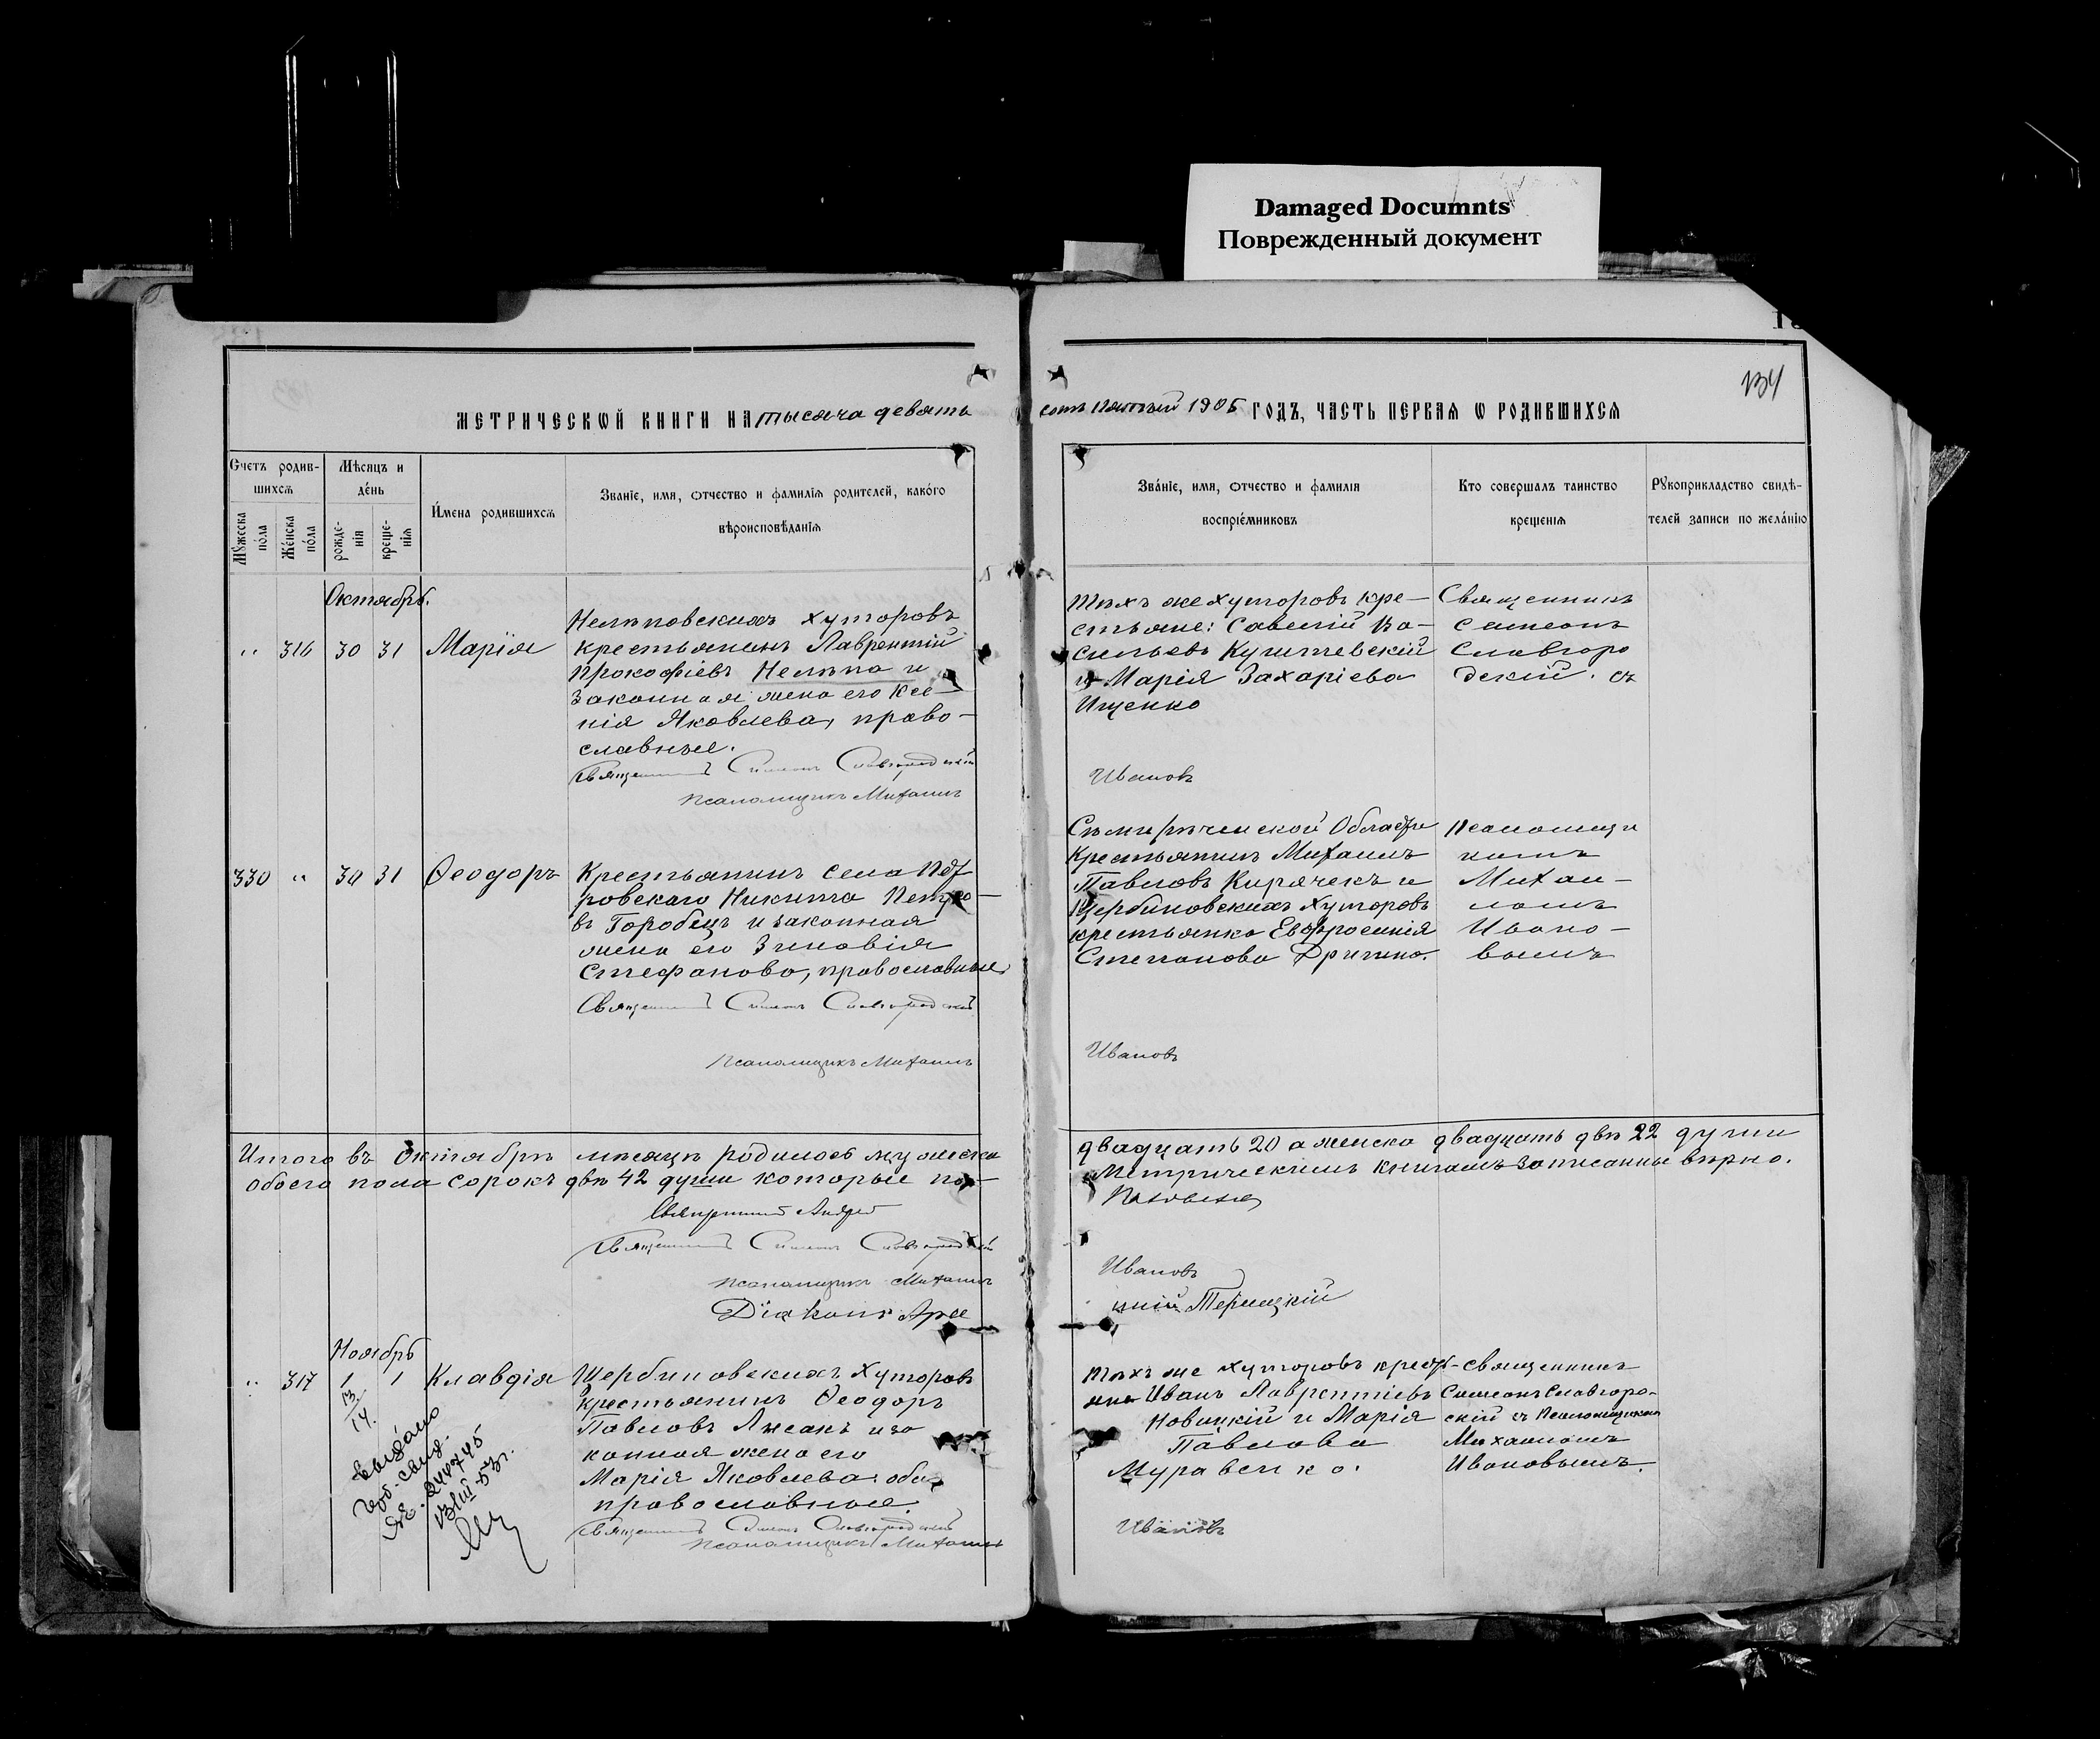 Damaged Documnts
Поврежденный документ
134
МЕТРИЧЕСКОЙ КНИГИ НА тысяча девять
сотъ пятый 1905 ГОДЪ, ЧАСТЬ ПЕРВАЯ Ѡ РОДИВШИХСѦ
Счетъ родив-
шихсѧ
Мѣсяцъ и
де́нь
И́мена родившихсѧ
Званїе, имя, ѻтчество и фамилїѧ родителей, како́го
вѣроисповѣ́данїѧ
Мꙋжеска
по́ла
Же́нска
по́ла
рожде-
нїѧ
креще-
нїѧ
Зва́нїе, имя, ѻтчество и фамилїѧ
воспрїе́мниковъ
Кто совершалъ таинство
крещенїѧ
Рꙋкоприкладство свидѣ-
телей записи по жела́нїю
Октябрь.
" 316 30 31 Марія
Нелѣповскихъ хуторовъ
крестьянинъ Лаврентій
Прокофіевъ Нелѣпа и
законная жена его Ксе-
нія Яковлева, право-
славные.
Священникъ Симеонъ Славгородскій
Псаломщикъ Михаилъ
Тѣхъ же хуторовъ кре-
стьяне: Савелій Ва-
сильевъ Куштевскій
и Марія Захаріева
Ищенко
Ивановъ
Священникъ
Симеонъ
Славгоро
дскій. съ
330 " 30 31 Ѳеодоръ
Крестьянинъ села Пет
ровскаго Никита Петро-
въ Горобецъ и законная
жена его Зиновія
Стефанова, православные
Священникъ Симеонъ Славгородскій
Псаломщикъ Михаилъ
Сѣмирѣченской Области
крестьянинъ Михаилъ
Павловъ Кирячекъ и
Щербиновскихъ хуторовъ
крестьянка Евфросинія
Степанова
Ивановъ
Псаломщи
комъ
Михаи-
ломъ
Ивано-
вымъ
Итого въ Октябрѣ мѣсяцѣ родилось мужеска
двадцать 20 а женска двадцать двѣ 22 души
обоего пола сорокъ двѣ 42 души которые по-
Метрическимъ книгамъ записаны вѣрно.
Священникъ Андрей
Священникъ Симеонъ Славгородскій
Псаломщикъ Михаилъ
Ивановъ
Діаконъ Арсе
ній Терлецкій
Ноябрь
" 317 1 1 Клавдія
13/14.
Щербиновскихъ хуторовъ
крестьянинъ Ѳеодоръ
Павловъ Лисакъ и за
конная жена его
Марія Яковлева оба
православные
Священникъ Симеонъ Славгородскій
Псаломщикъ Михаилъ
Тѣхъ же хуторовъ кресть-
яне Иванъ Лаврентіевъ
Новицкій и Марія
Павлова
Муравенко.
Ивановъ
Священникъ
Симеонъ Славгоро-
скій съ Псаломщикомъ
Михаиломъ
Ивановымъ.
выдано
свид.